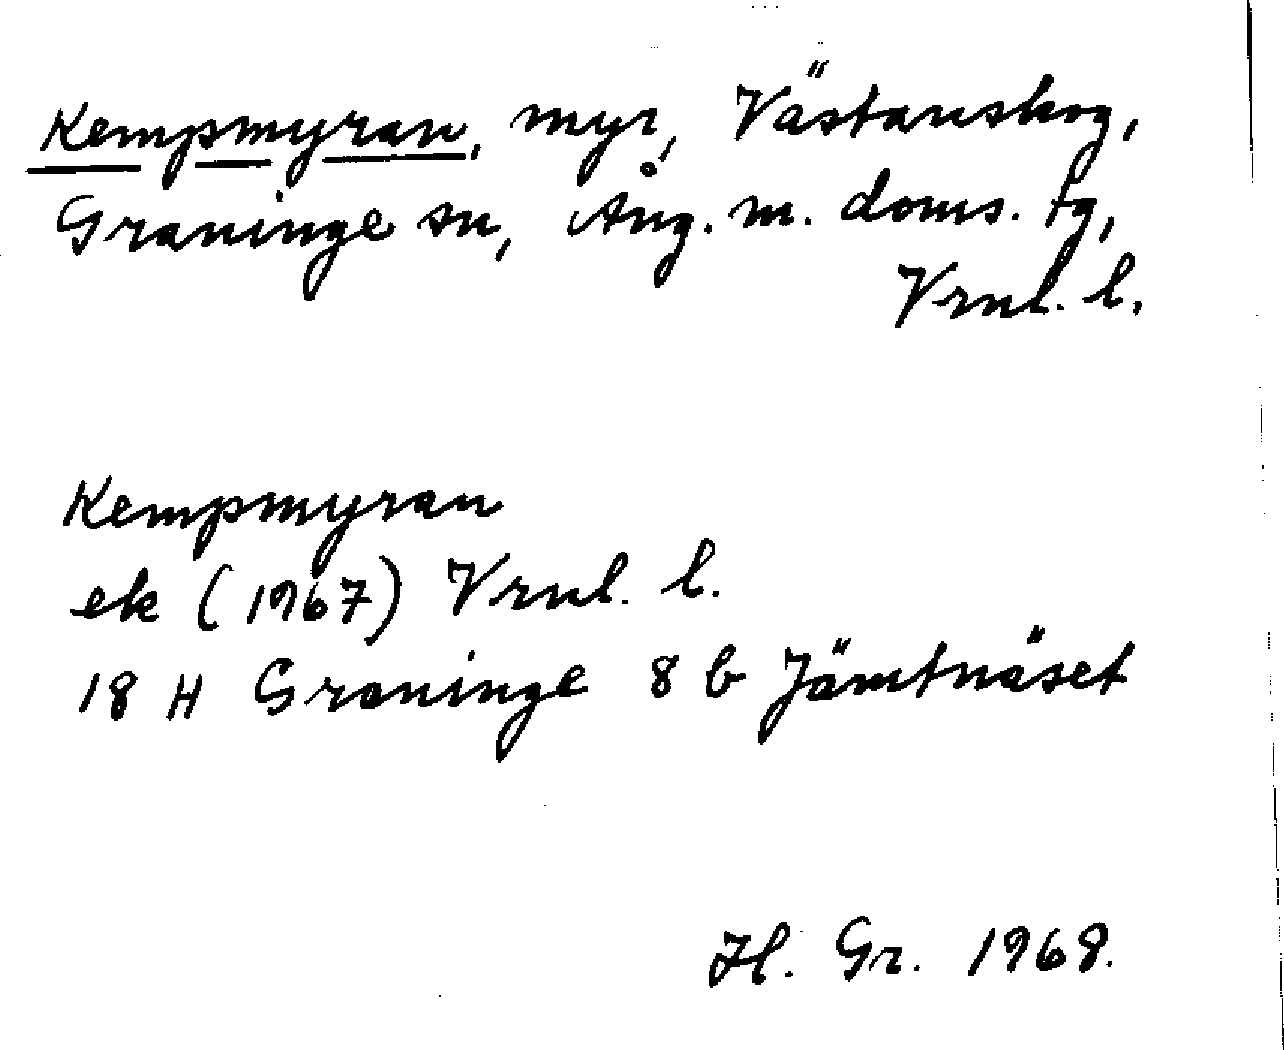 Kempmyran, myr, Västanskog,
Graninge sn, Ång. m. doms. tg,
Vrnl. l.
Kempmyran
ek (1967) Vrnl. l.
18 H Graninge 8 b Jämtnäset
Hl. Gr. 1968.